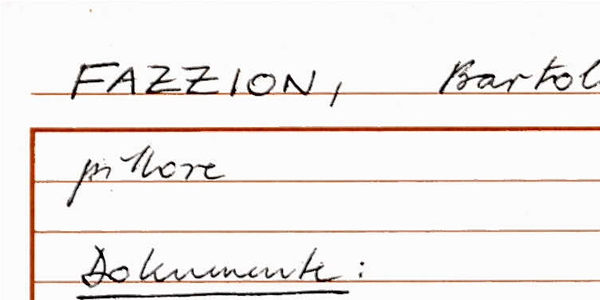 FAZZION, Bartol
pittore
Dokumente: